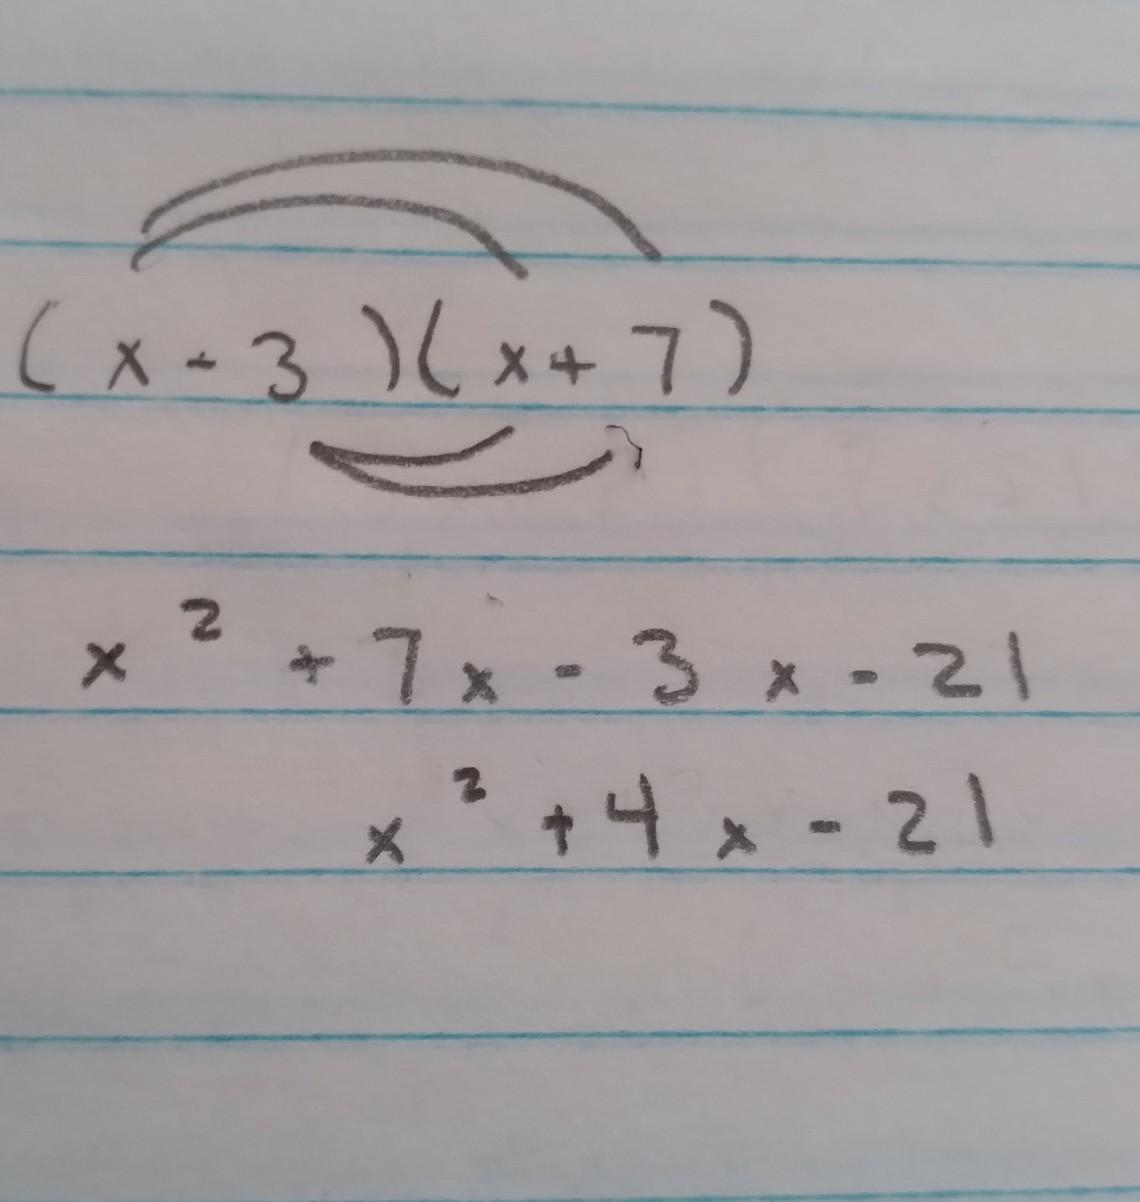 (x - 3)(x + 7)
x² + 7x - 3x - 21
x² + 4x - 21